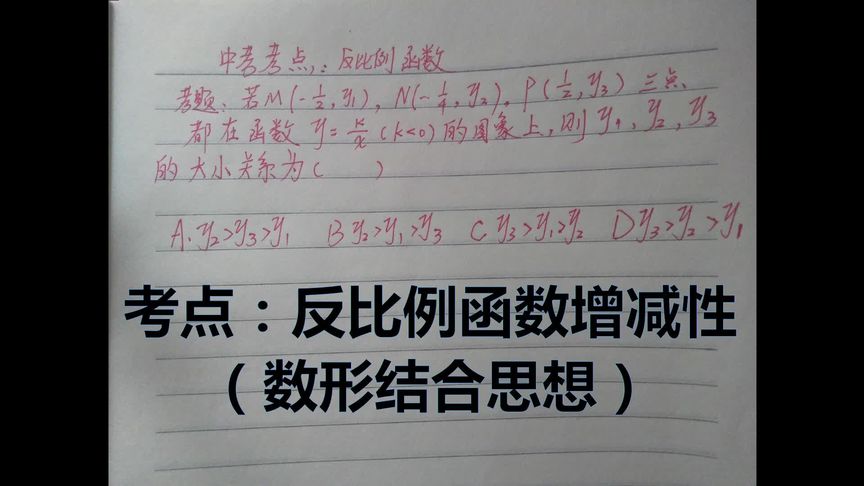 中考考点:反比例函数
考题:若M(-1/2,y₁),N(-1/4,y₂)。P(1/2,y₃)三点、
都在函数y=k/x(k<0)的图象上,则y₁、y₂、y₃
的大小关系为( )
A.y₂>y₃>y₁ B y₂>y₁>y₃ C y₃>y₁>y₂ D y₃>y₂>y₁
考点:反比例函数增减性
(数形结合思想)